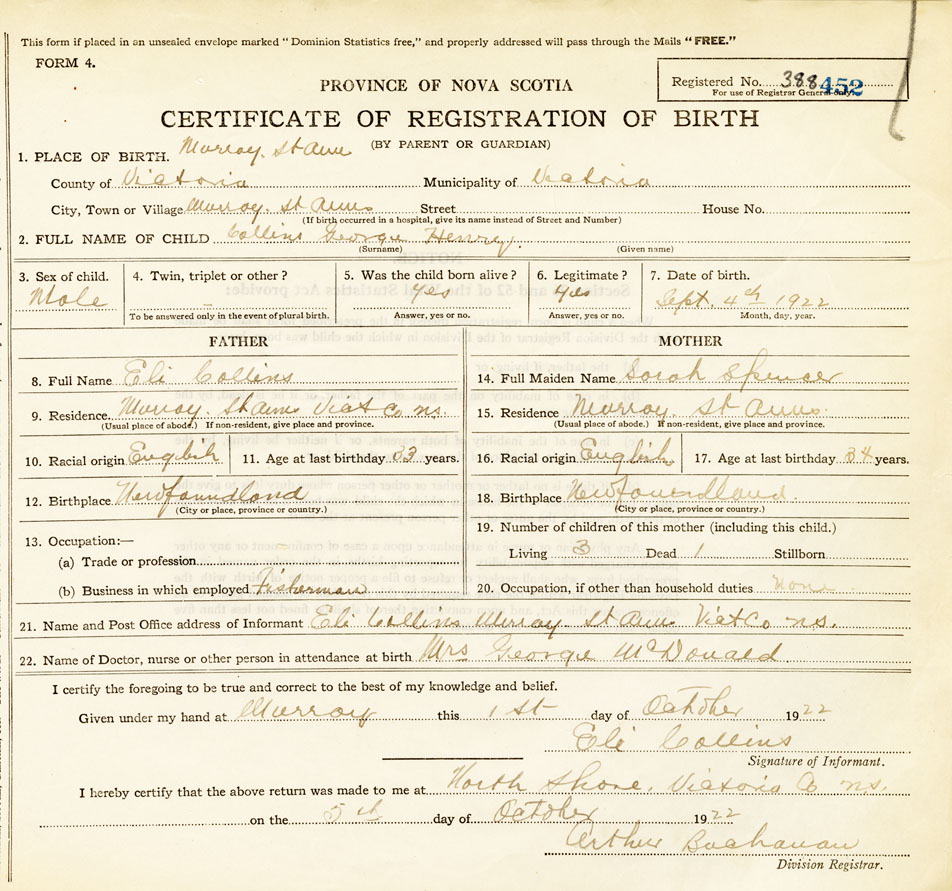 This form if placed in an unsealed envelope marked "Dominion Statistics free," and properly addressed will pass through the Mails "FREE."
FORM 4.
PROVINCE OF NOVA SCOTIA
Registered No. 388 452
For use of Registrar General only.
CERTIFICATE OF REGISTRATION OF BIRTH
(BY PARENT OR GUARDIAN)
1. PLACE OF BIRTH. Murray. St Anns
County of Victoria Municipality of Victoria
City, Town or Village Murray. St Anns Street House No.
(If birth occurred in a hospital, give its name instead of Street and Number)
2. FULL NAME OF CHILD Collins George Henry.
(Surname) (Given name)
3. Sex of child. 4. Twin, triplet or other? 5. Was the child born alive? 6. Legitimate? 7. Date of birth.
Male – yes yes Sept. 4th 1922
To be answered only in the event of plural birth. Answer, yes or no. Answer, yes or no. Month, day, year.
FATHER MOTHER
8. Full Name Eli Collins 14. Full Maiden Name Sarah Spencer
9. Residence. Murray. St Anns Vict Co ns. 15. Residence Murray. St Anns.
(Usual place of abode.) If non-resident, give place and province. (Usual place of abode.) If non-resident, give place and province.
10. Racial origin English 11. Age at last birthday 33 years. 16. Racial origin English 17. Age at last birthday 34 years.
12. Birthplace Newfoundland 18. Birthplace Newfoundland.
(City or place, province or country.) (City or place, province or country.)
13. Occupation:— 19. Number of children of this mother (including this child.)
(a) Trade or profession – Living 3 Dead 1 Stillborn
(b) Business in which employed Fisherman 20. Occupation, if other than household duties None
21. Name and Post Office address of Informant Eli Collins Murray St Anns Vict Co ns.
22. Name of Doctor, nurse or other person in attendance at birth Mrs George McDonald
I certify the foregoing to be true and correct to the best of my knowledge and belief.
Given under my hand at Murray this 1st day of October 1922
Eli Collins
Signature of Informant.
I hereby certify that the above return was made to me at North Shore, Victoria Co ns.
on the 5th day of October 1922
Arthur Buchanan
Division Registrar.